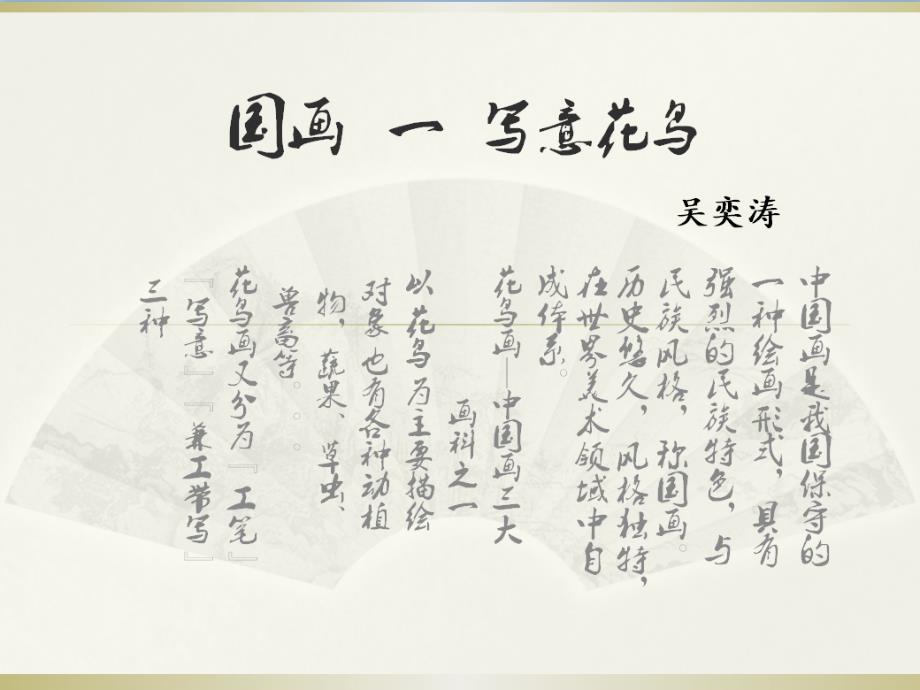 国画 一 写意花鸟
吴奕涛
中国画是我国保守的
一种绘画形式，具有
强烈的民族特色，与
民族风格，称国画。
历史悠久，风格独特，
在世界美术领域中自
成体系。
花鸟画—中国画三大
画科之一
以花鸟为主要描绘
对象也有各种动植
物，蔬果、草虫、
兽畜等。。。
花鸟画又分为『工笔』
『写意』『兼工带写』
三种